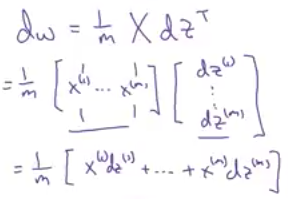 dw = 1/m X dz^T
= 1/m [x^(1) ... x^(m)] [dz^(1) ⋮ dz^(m)]
= 1/m [x^(1)dz^(1) + ... + x^(m)dz^(m)]